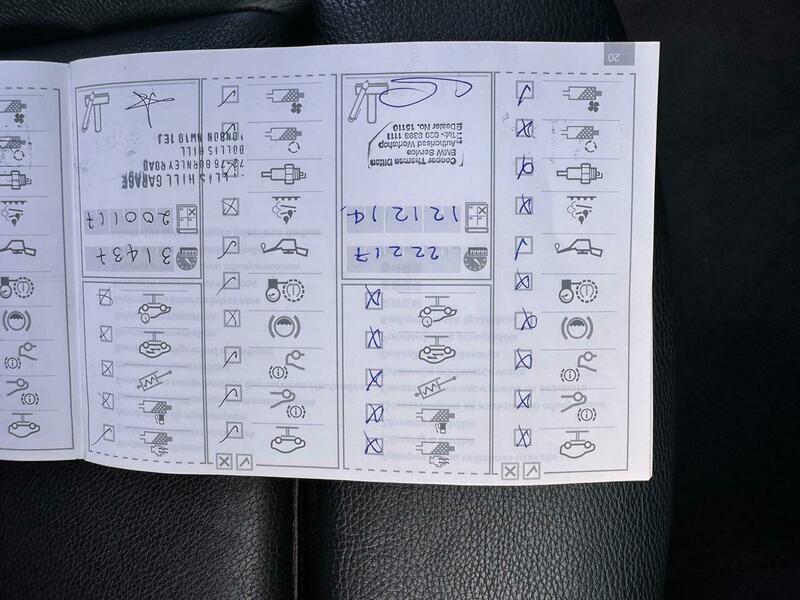 22217
121214
Cooper Thames Ditton
BMW Service
Authorised Workshop
Tel:- 020 8398
Dealer No. 15110
20
31437
200117
LIS HILL GARAGE
72-76 BURNLEY ROAD
DOLLIS HILL
LONDON NW10 1EJ